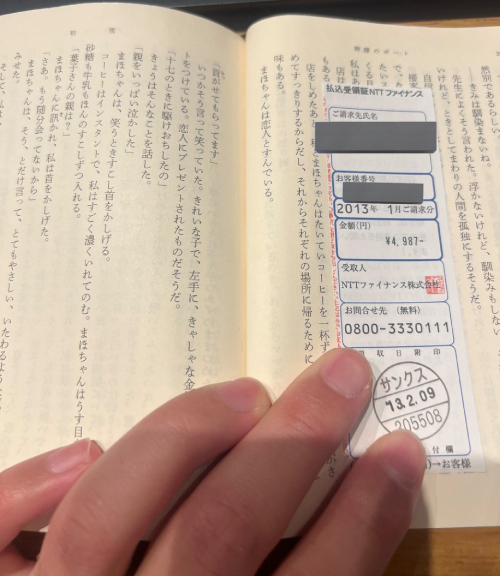 神様のボート
然別であるらしい。
――きみは馴染まないね。浮かないけれど、馴染みもしない
先生によくそう言われた。
いけれど、ときとしてまわりの人間を孤独にするそうだ。
店をしめたあと、
まほちゃんはたいていコーヒーを一杯ず
めてすっきりするからだし、それからそれぞれの場所に帰るために
味もある。
まほちゃんは恋人とすんでいる。
払込受領証NTTファイナンス
ご請求先氏名
お客様番号
2013年 1月ご請求分
金額(円)
¥4,987-
受取人
NTTファイナンス株式会社
お問合せ先 (無料)
0800-3330111
収日附印
サンクス
'13.2.09
205508
付欄
→お客様
「貢がせてもらってます」
いつかそう言って笑っていた。きれいな子で、左手に、きゃしゃな金
トをつけている。恋人にプレゼントされたものだそうだ。
「十七のときに駆けおちしたの」
きょうはそんなことを話した。
「親をいっぱい泣かした」
まほちゃんは、笑うときすこし首をかしげる。
コーヒーはインスタントで、私はすごく濃くいれてのむ。まほちゃんはうす目
砂糖も牛乳もほんのすこしずつ入れる。
「葉子さんの親は?」
まほちゃんに訊かれ、私は首をかしげた。
「さあ。もう随分会ってないから」
まほちゃんは、そう、とだけ言って、とてもやさしい、いたわるような
みせた。
そして、私は